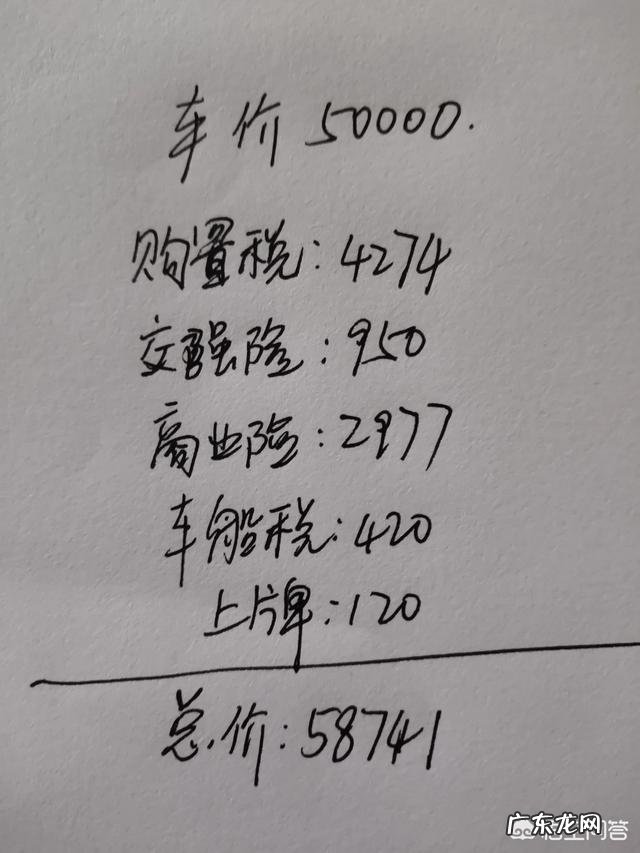 车价 50000.
购置税:4274
交强险:950
商业险:2977
车船税:420
上牌:120
总价:58741
广东龙网